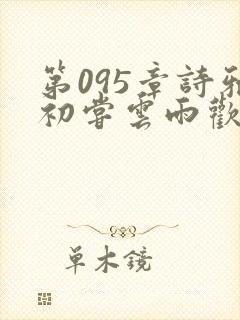 第095章詩雅
初嘗雲雨歡
单木鏡